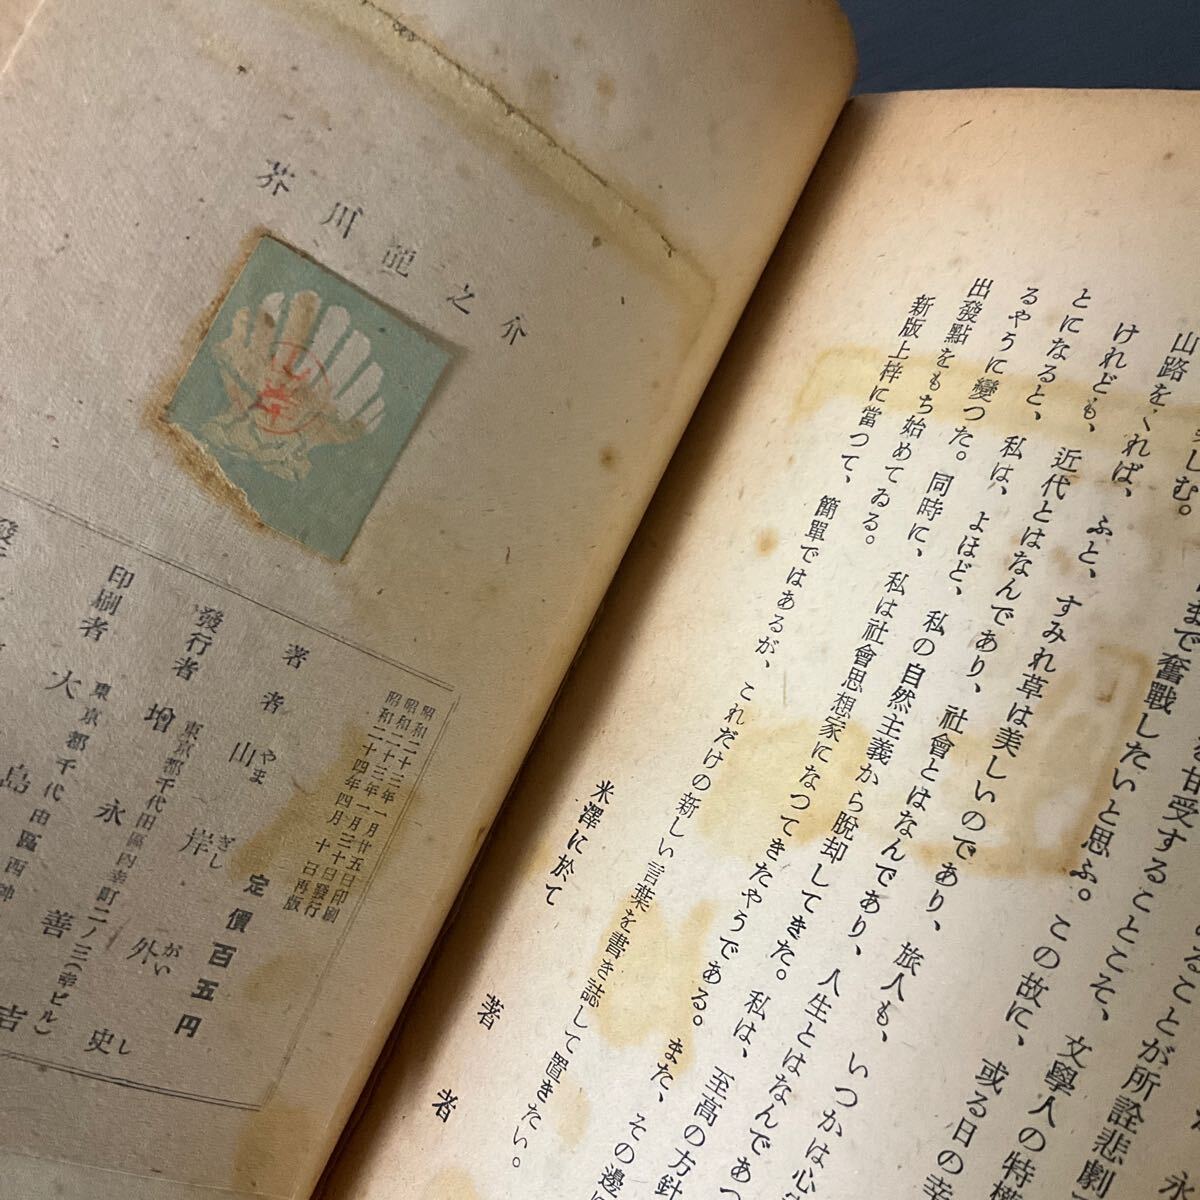 永
なことが所詮悲劇
甘受することこそ、文學人の特
まで奮戰したいと思ふ。この故に、或る日の幸
しむ。
山路をくれば、ふと、すみれ草は美しいのであり、旅人も、いつかは心
けれども、近代とはなんであり、社會とはなんであり、人生とはなんであつ
とになると、私は、よほど、私の自然主義から脱却してきた。私は、至高の方針
るやうに變つた。同時に、私は社會思想家になつてきたやうである。また、その邊
出發點をもち始めてゐる。
新版上梓に當つて、簡單ではあるが、これだけの新しい言葉を書き誌して置きたい。
米澤に於て
著者
芥川龍之介
昭和二十三年一月廿五日印刷
昭和二十三年一月三十日發行
昭和二十四年四月十日再版
定價百五円
著者 山岸外史
やまぎしがいし
發行者 增永善吉
東京都千代田區内幸町二ノ三(幸ビル)
印刷者 大島
東京都千代田區西神
發